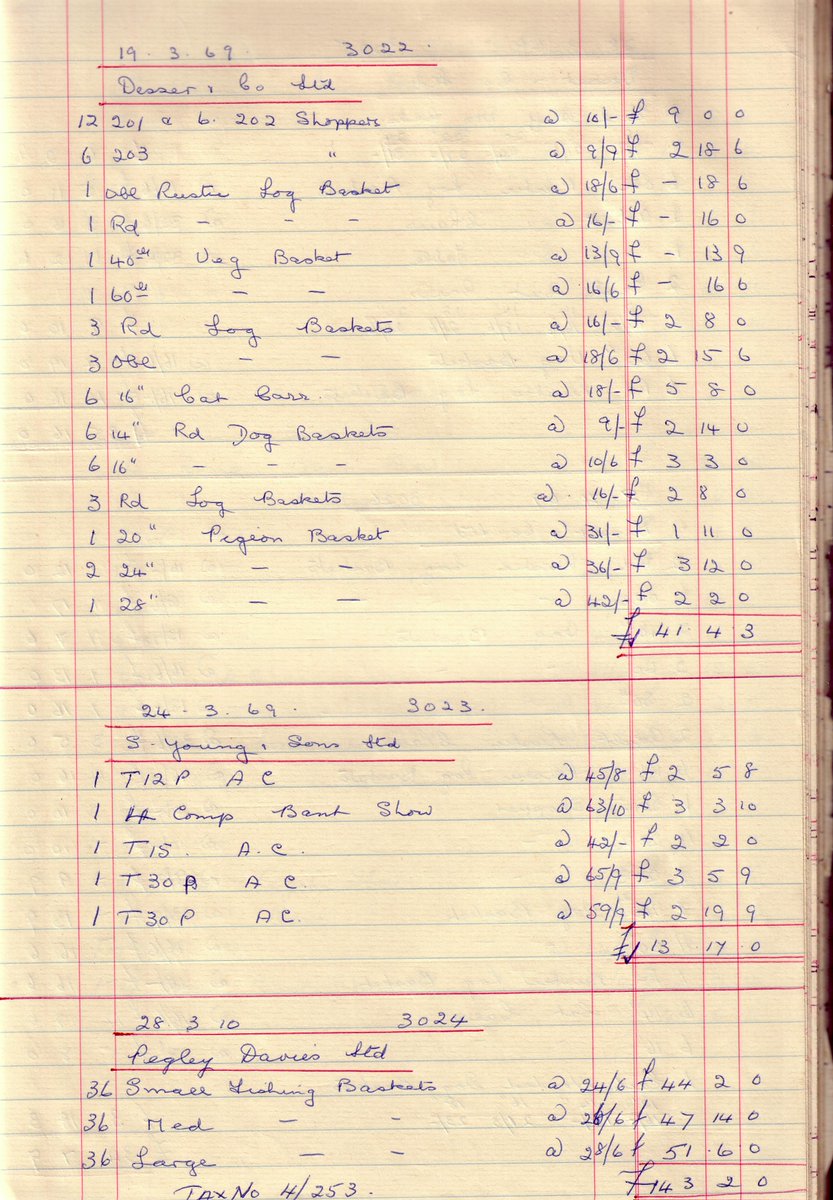 19 . 3 . 69 . 3022 .
Desser & Co Ltd
12 201 a b. 202 Shoppers @ 10/- £ 9 0 0
6 203 " @ 9/9 £ 2 18 6
1 Obl Rustic Log Basket @ 18/6 £ - 18 6
1 Rd - - - @ 16/- £ - 16 0
1 40th Veg Basket @ 13/9 £ - 13 9
1 60th - - @ 16/6 £ - 16 6
3 Rd Log Baskets @ 16/- £ 2 8 0
3 Obl - - @ 18/6 £ 2 15 6
6 16" Cat Carr. @ 18/- £ 5 8 0
6 14" Rd Dog Baskets @ 9/- £ 2 14 0
6 16" - - - @ 10/6 £ 3 3 0
3 Rd Log Baskets @ . 16/- £ 2 8 0
1 20" Pigeon Basket @ 31/- £ 1 11 0
2 24" - - @ 36/- £ 3 12 0
1 28" - - @ 42/- £ 2 2 0
£ 41 . 4 . 3
24 . 3 . 69 . 3023 .
S. Young & Sons Ltd
1 T12P AC @ 45/8 £ 2 5 8
1 Comp Bant Show @ 63/10 £ 3 3 10
1 T15 . A.C. @ 42/- £ 2 2 0
1 T30B A C. @ 65/9 £ 3 5 9
1 T30P AC. @ 59/9 £ 2 19 9
£ 13 . 17 . 0
28 3 10 3024
Pegley Davies Ltd
36 Small Fishing Baskets @ 24/6 £ 44 2 0
36 Med - - @ 26/6 £ 47 14 0
36 Large - - @ 28/6 £ 51 . 6 0
£ 143 2 0
TAX No 4/253 .